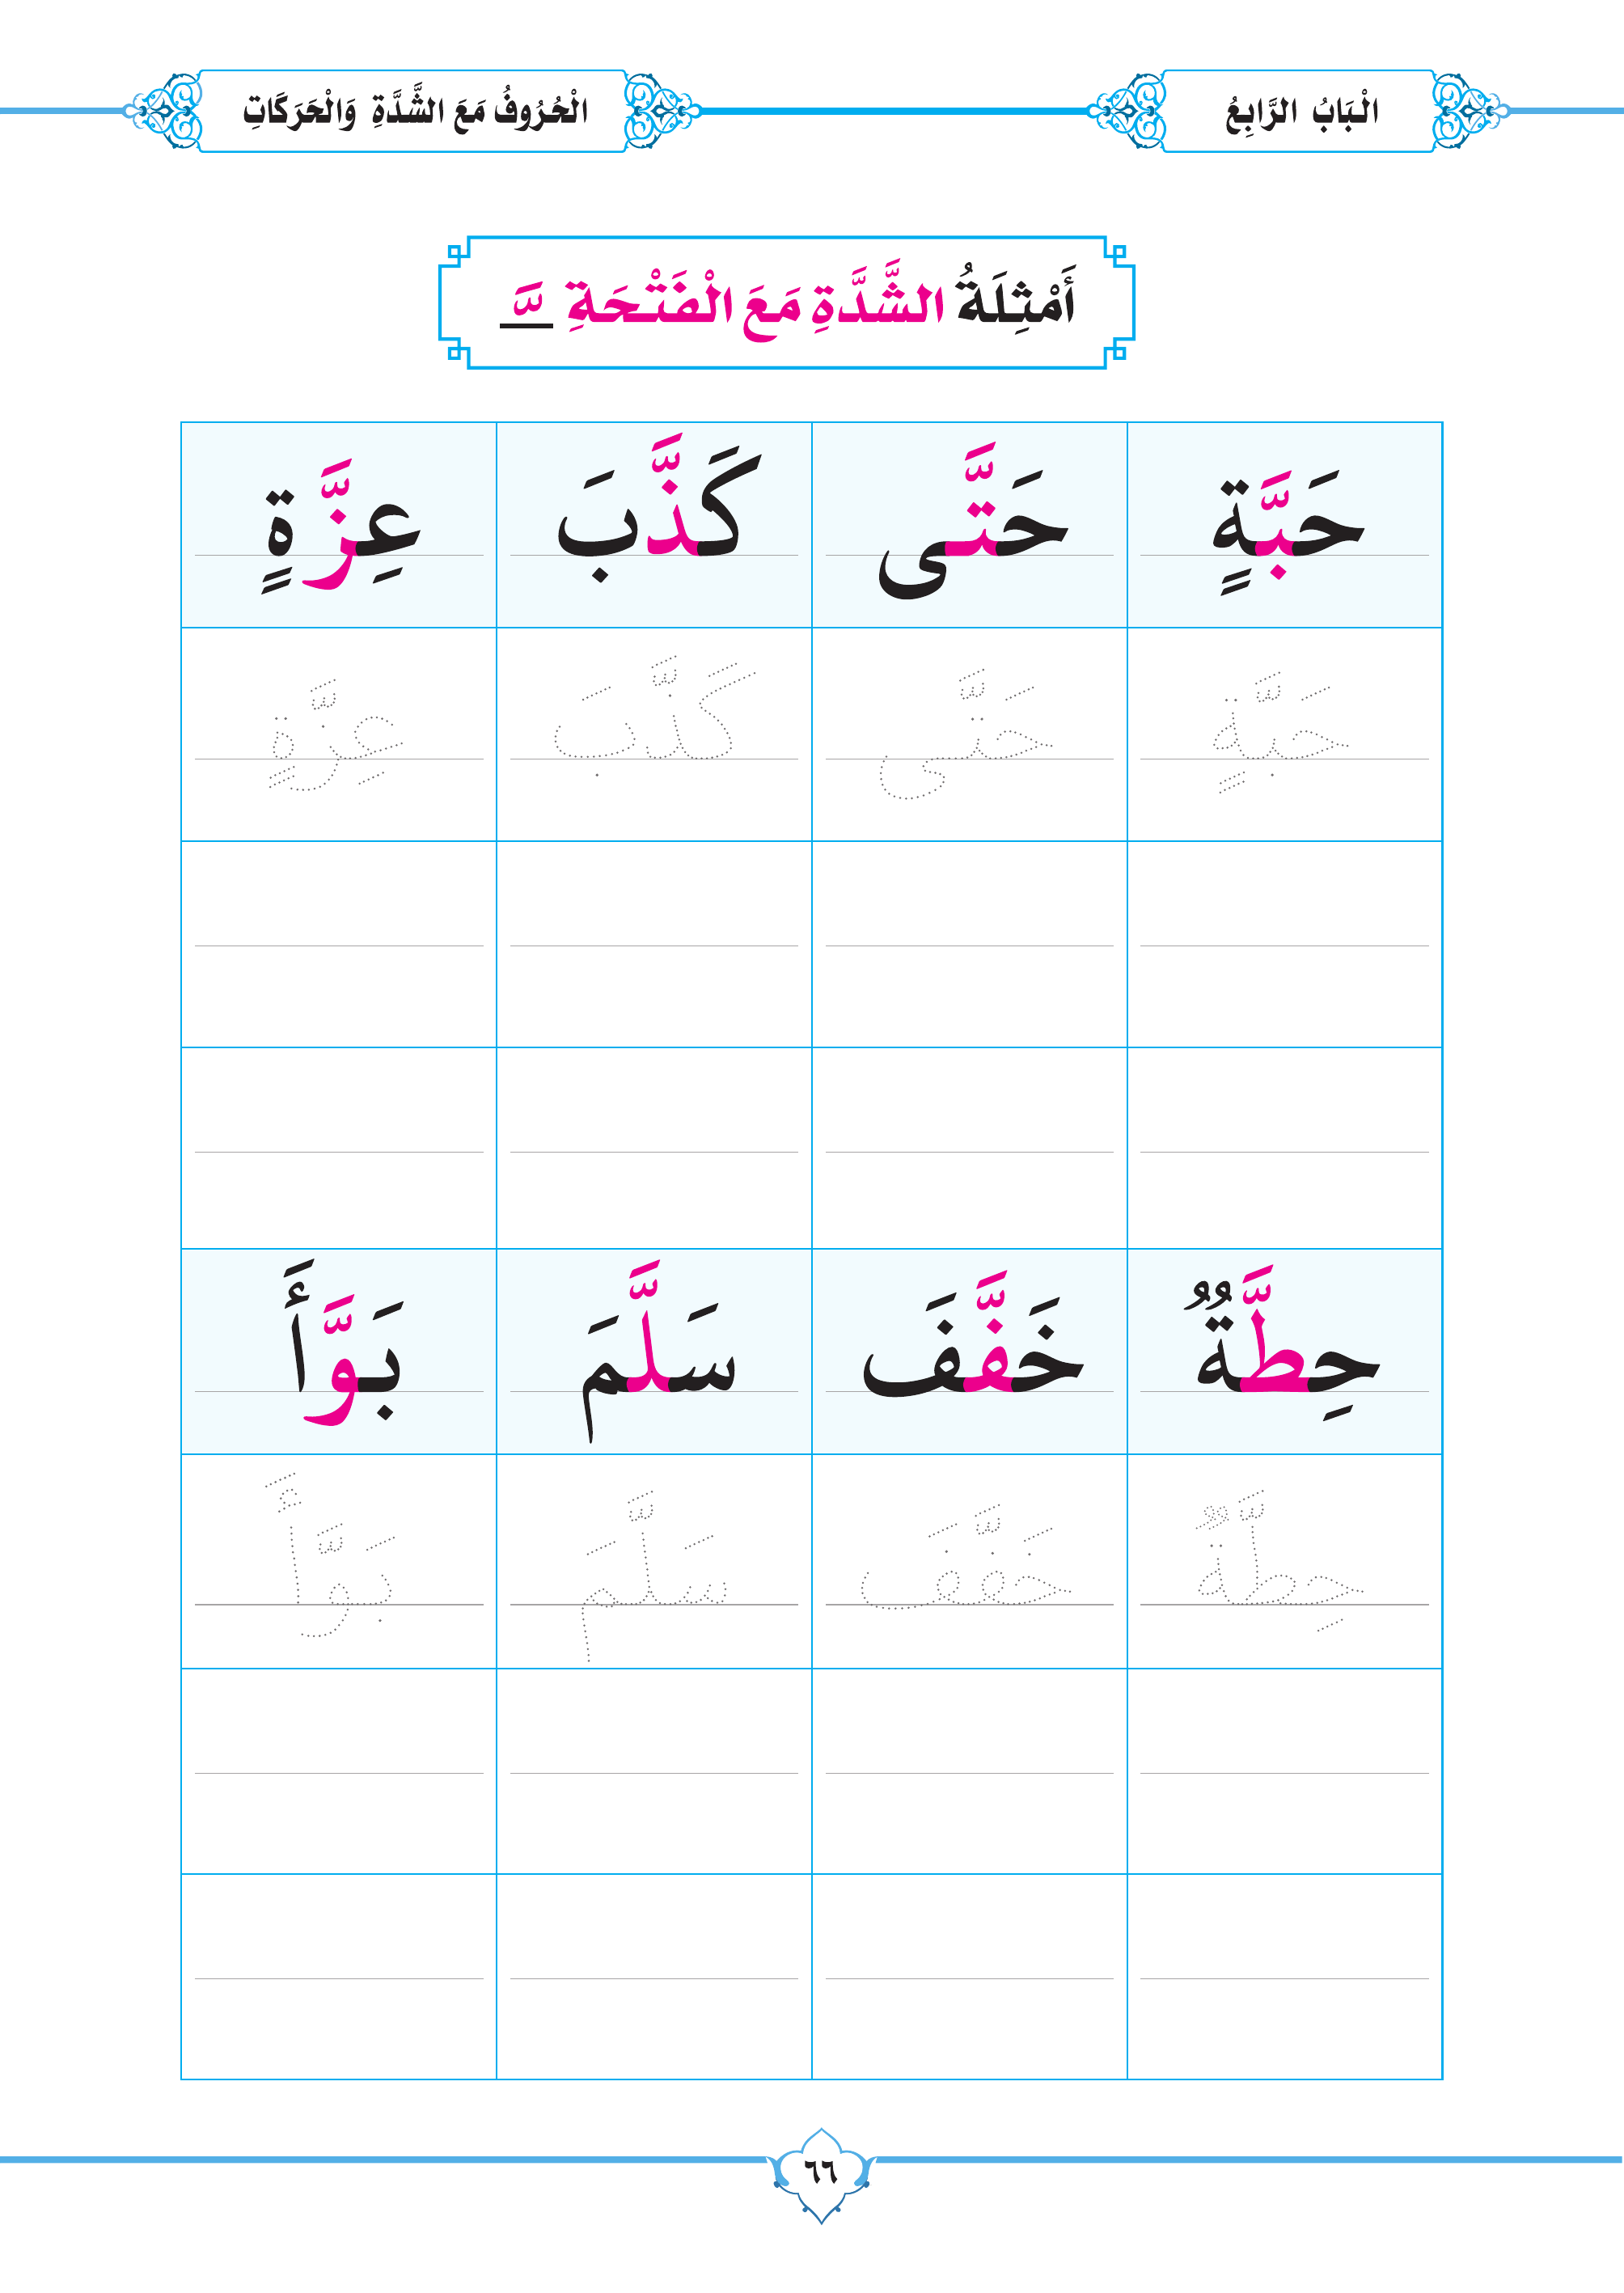 الْبَابُ الرَّابِعُ
الْحُرُوفُ مَعَ الشَّدَّةِ وَالْحَرَكَاتِ
أَمْثِلَةُ الشَّدَّةِ مَعَ الْفَتْحَةِ ـَّ
حَبَّةٍ حَتَّى كَذَّبَ عِزَّةٍ
حَبَّةٍ حَتَّى كَذَّبَ عِزَّةٍ
حِطَّةٌ خَفَّفَ سَلَّمَ بَوَّأَ
حِطَّةٌ خَفَّفَ سَلَّمَ بَوَّأَ
٦٦